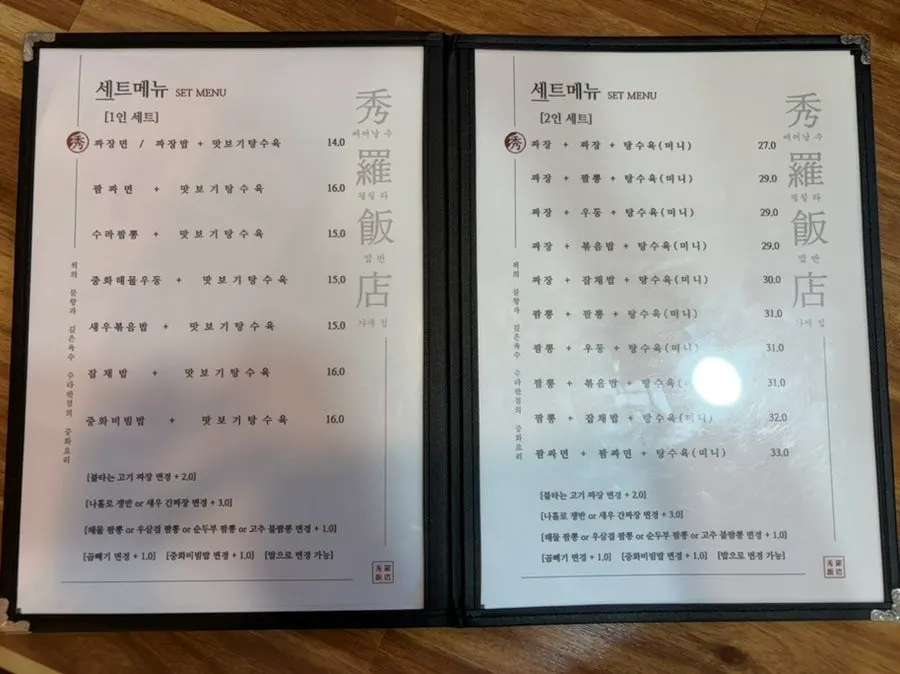 세트메뉴 SET MENU
[1인 세트]
秀 짜장면 / 짜장밥 + 맛보기탕수육 14.0
짬짜면 + 맛보기탕수육 16.0
수라짬뽕 + 맛보기탕수육 15.0
중화해물우동 + 맛보기탕수육 15.0
새우볶음밥 + 맛보기탕수육 15.0
잡채밥 + 맛보기탕수육 16.0
중화비빔밥 + 맛보기탕수육 16.0
[불타는 고기 짜장 변경 + 2.0]
[나홀로 쟁반 or 새우 간짜장 변경 + 3.0]
[해물 짬뽕 or 우삼겹 짬뽕 or 순두부 짬뽕 or 고추 불짬뽕 변경 + 1.0]
[곱빼기 변경 + 1.0] [중화비빔밥 변경 + 1.0] [밥으로 변경 가능]
최의 불향과 깊은육수 수라반점의 중화요리
秀
빼어날 수
羅
펼칠 라
飯
밥 반
店
가게 점
세트메뉴 SET MENU
[2인 세트]
秀 짜장 + 짜장 + 탕수육(미니) 27.0
짜장 + 짬뽕 + 탕수육(미니) 29.0
짜장 + 우동 + 탕수육(미니) 29.0
짜장 + 볶음밥 + 탕수육(미니) 29.0
짜장 + 잡채밥 + 탕수육(미니) 30.0
짬뽕 + 짬뽕 + 탕수육(미니) 31.0
짬뽕 + 우동 + 탕수육(미니) 31.0
짬뽕 + 볶음밥 + 탕수육(미니) 31.0
짬뽕 + 잡채밥 + 탕수육(미니) 32.0
짬짜면 + 짬짜면 + 탕수육(미니) 33.0
[불타는 고기 짜장 변경 + 2.0]
[나홀로 쟁반 or 새우 간짜장 변경 + 3.0]
[해물 짬뽕 or 우삼겹 짬뽕 or 순두부 짬뽕 or 고추 불짬뽕 변경 + 1.0]
[곱빼기 변경 + 1.0] [중화비빔밥 변경 + 1.0] [밥으로 변경 가능]
최의 불향과 깊은육수 수라반점의 중화요리
秀
빼어날 수
羅
펼칠 라
飯
밥 반
店
가게 점